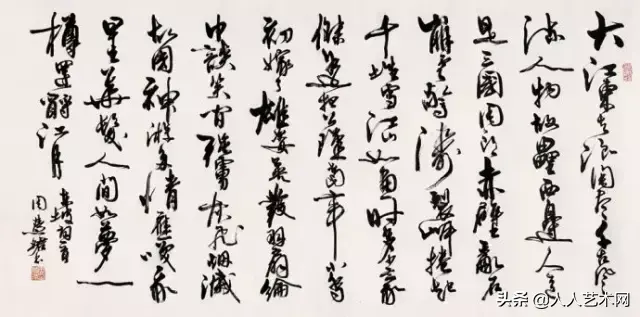 大江東去浪淘盡千古風
流人物故壘西邊人道
是三國周郎赤壁亂石
崩雲驚濤裂岸捲起
千堆雪江山如畫一時多少豪
傑遙想公瑾當年小喬
初嫁了雄姿英發羽扇綸
巾談笑間強虜灰飛煙滅
故國神遊多情應笑我
早生華髮人間如夢一
樽還酹江月
東坡詞一首
头条 @人人艺术网